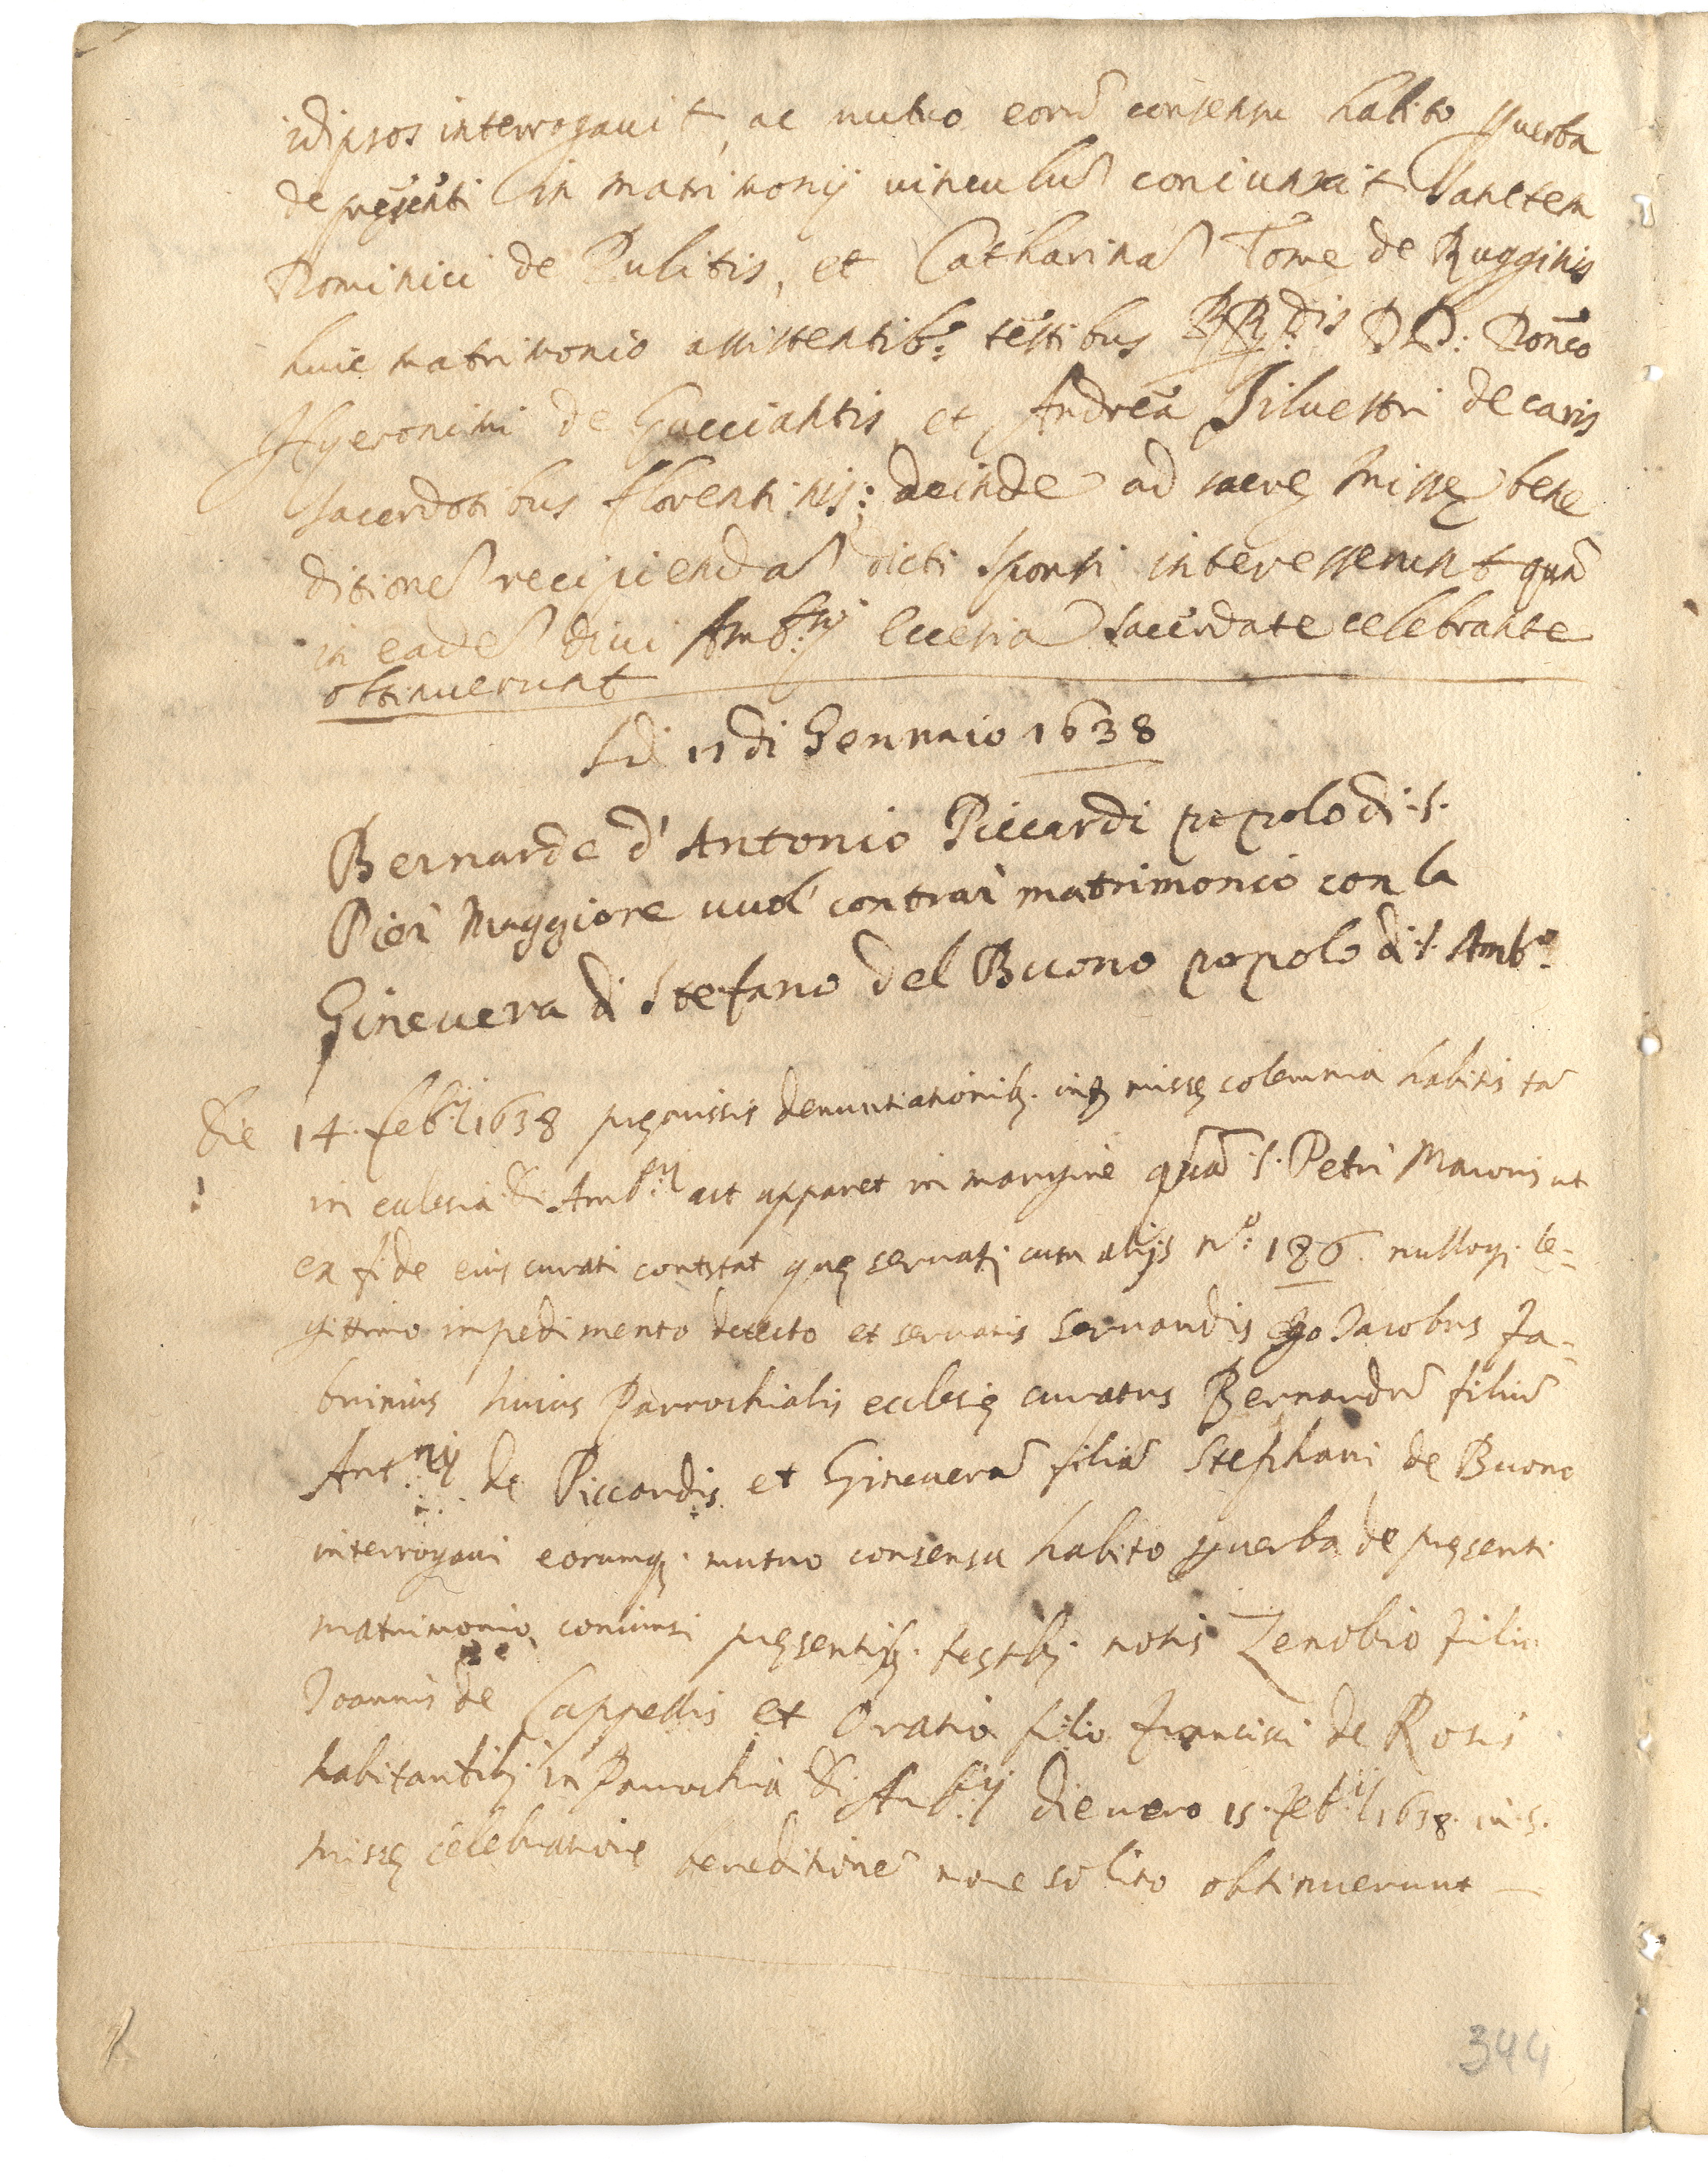 idipsos interrogavit, ac mutuo eorũ consensu habito p verba
de presenti in matrimonij uinculũ coniunxit Sanctem
Dominici de Pulitis, et Catharinã Tome de Rugginis
huic matrimonio assistentib: testibus RR:dis DD: Domco
Hyeronimi de Gucciantis et Andrea Siluestri de caris
sacerdotibus florentinis; deinde ad sacrę missę bene
ditionẽ recipiendã dicti sponsi interesserunt quã
in eadẽ diui Amb:sij Eccesia sacerdate celebrante
obtinuerunt
Adi 11 di Gennaio 1638
Bernardo d'Antonio Piccardi popolo di .S.
Pier Maggiore uuol' contrar matrimonio con la
Gineuera di Stefano del Buono popolo di .S. Amb.o
Die 14. feb:ij 1638 pręmissis denuntiationib. missę solemnia habitis tã
in eclesia S. Amb:ij ut apparet in margine quã .S. Petri Maioris ut
ex fide eius curati constat quę seruat cum alijs No: 186. nulloq. le-
gittimo impedimento detecto et seruatis seruandis Ego Jacobus fa-
brinius huius Parrochialis ecclesię curatus Bernardũ filiũ
Ant:nij de Piccardis et Gineuerã filiã Stephani de Buono
interrogaui eorumq. mutuo consensu habito p uerba de pręsenti
matrimonio coniunsi pręsentib. testib. notis Zenobio filio
Joannis de Cappellis et Oratio filio Francisci de Rosis
habitantib. in Parrochia S. Amb:ij die uero 15. feb:ij 1638. in .S.
missę celebratione beneditionẽ more solito obtinuerunt
344